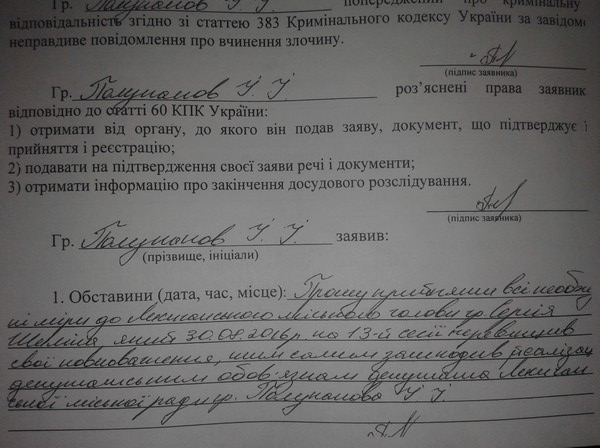 Гр. Полупанов І. І. попереджений про кримінальну
відповідальність згідно зі статтею 383 Кримінального кодексу України за завідомо
неправдиве повідомлення про вчинення злочину.
(підпис заявника)
Гр. Полупанов І. І. роз'яснені права заявник
відповідно до статті 60 КПК України:
1) отримати від органу, до якого він подав заяву, документ, що підтверджує ї
прийняття і реєстрацію;
2) подавати на підтвердження своєї заяви речі і документи;
3) отримати інформацію про закінчення досудового розслідування.
(підпис заявника)
Гр. Полупанов І. І. заявив:
(прізвище, ініціали)
1. Обставини (дата, час, місце): Прошу прийняти всі необхід
ні міри до міського голови гр. Сергія
який 30.08.2016р. на 13-й сесії перевищив
свої повноваження, тим самим зашкодив реалізац
депутатським обов'язкам депутата
міської ради гр. Полупанова І І